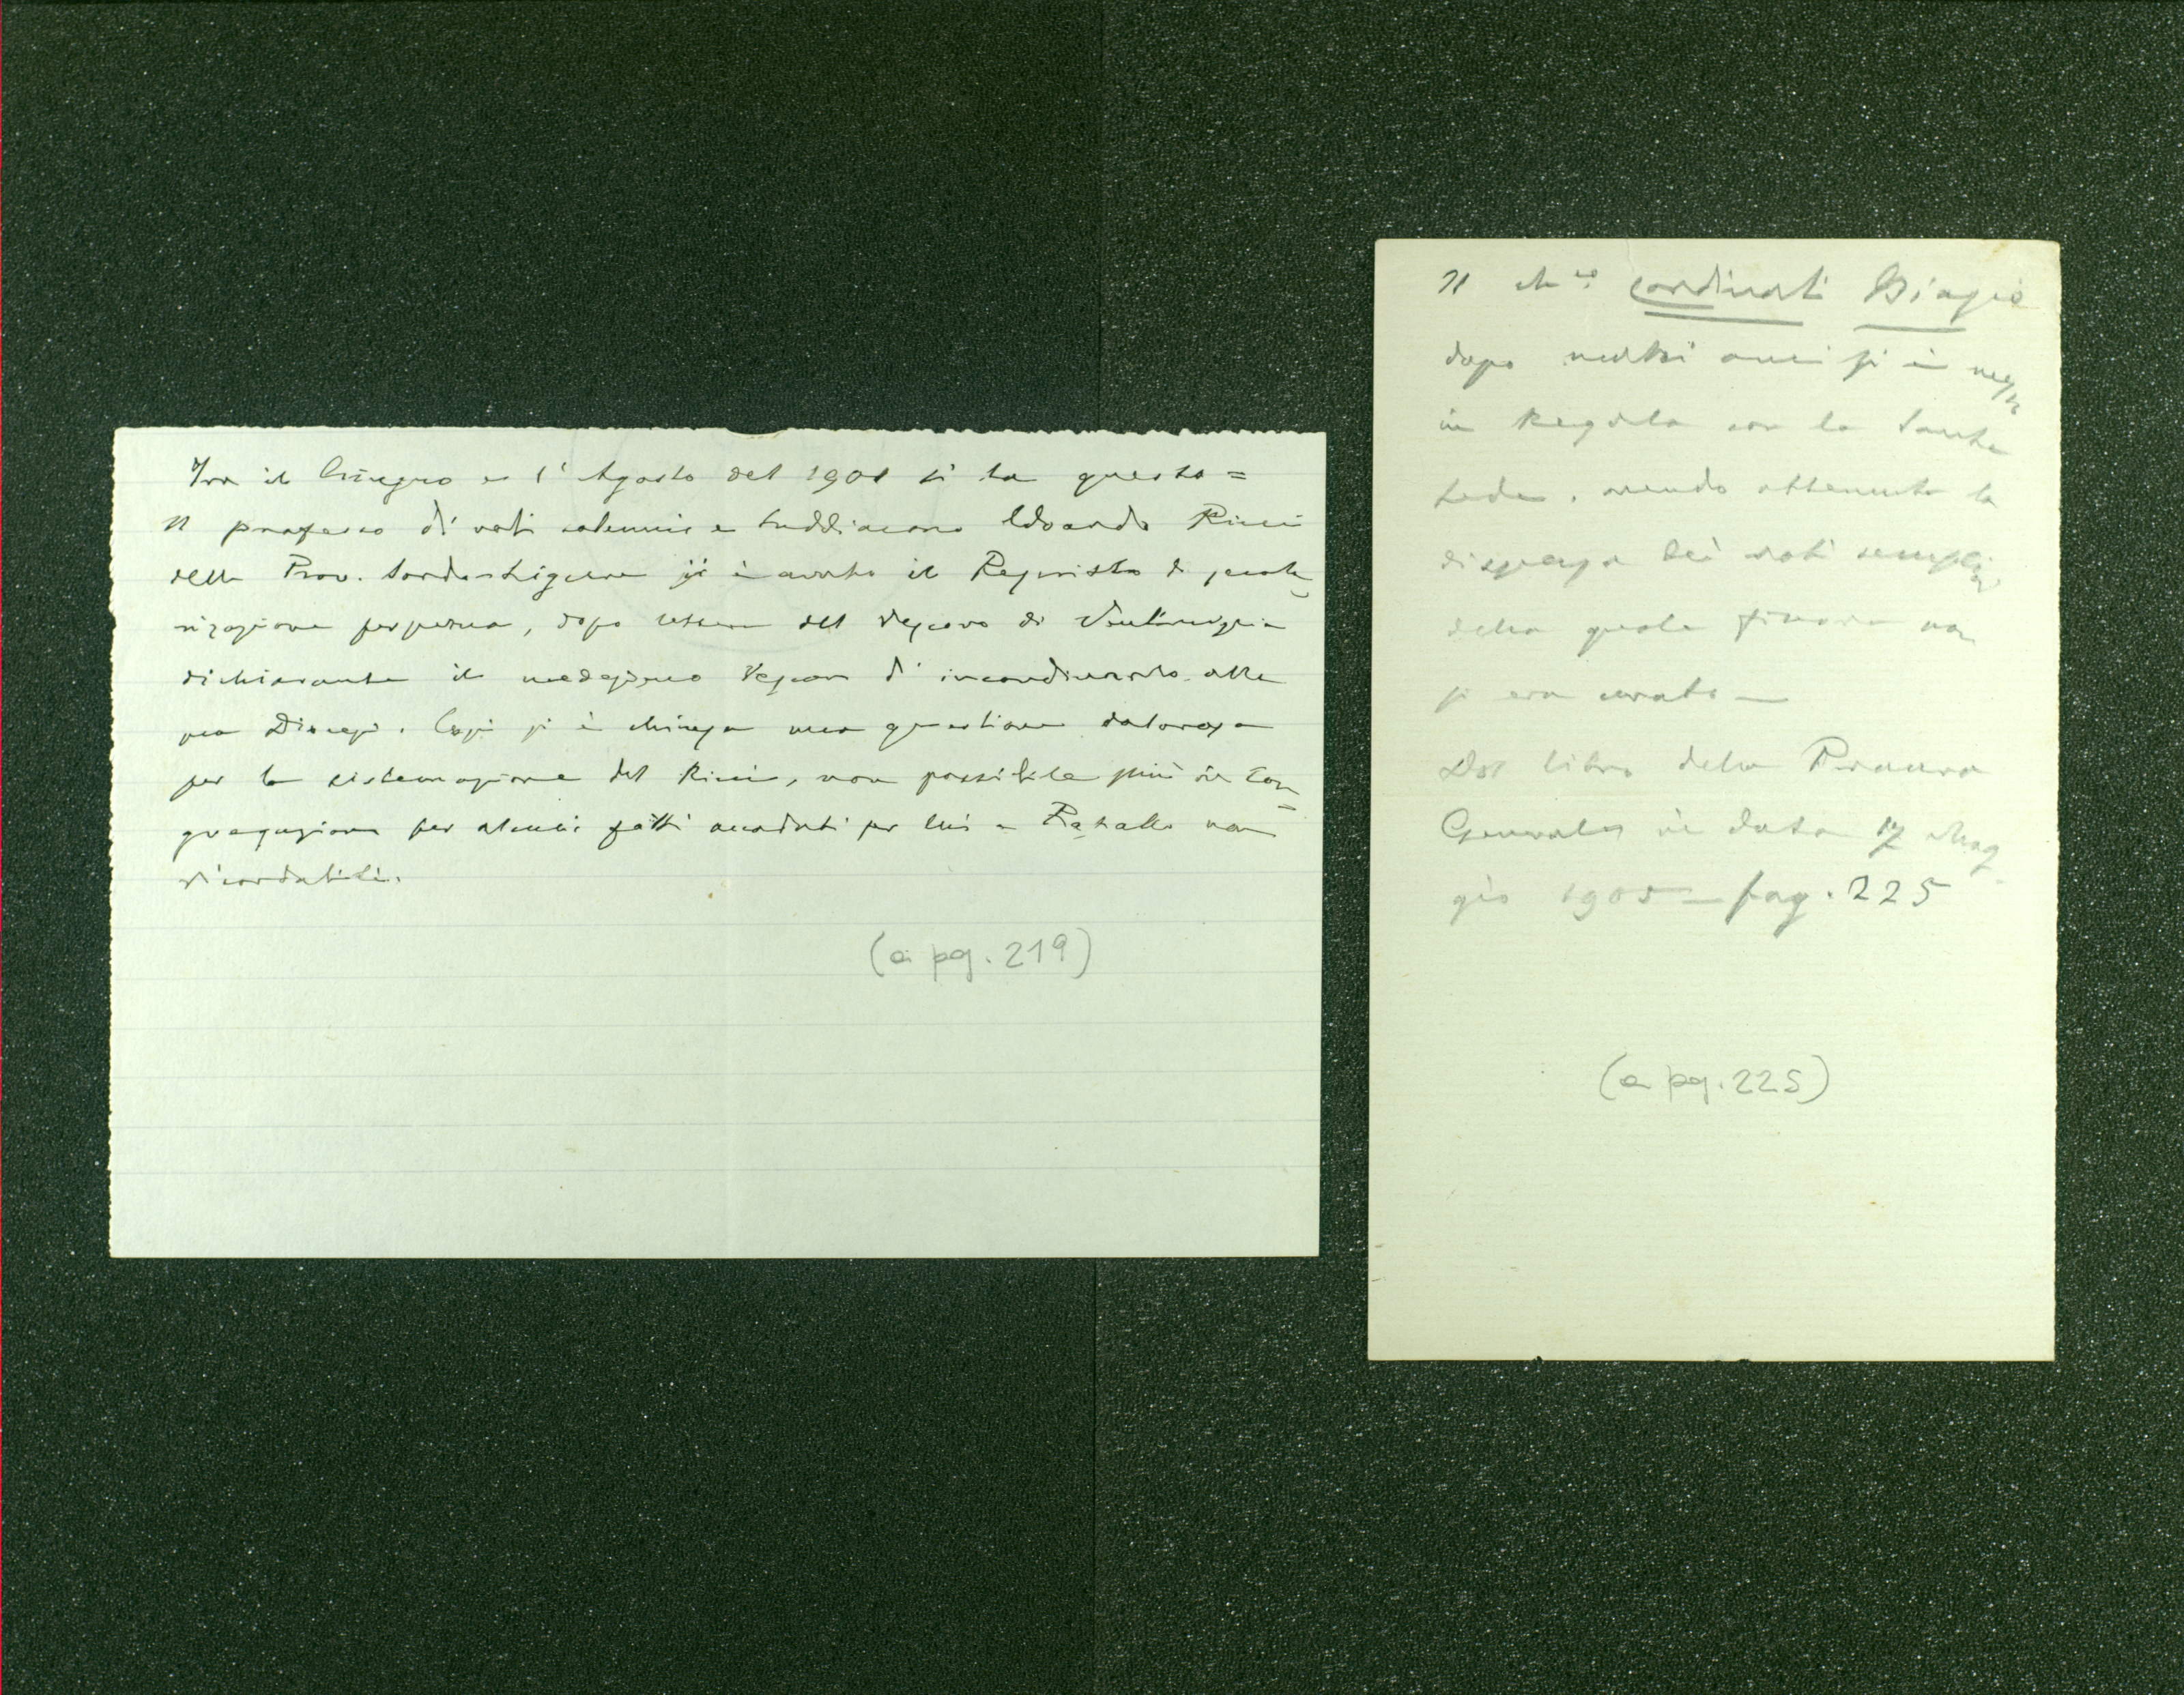 Tra il Giugno e l'Agosto del 1901 si ha questo =
Il professo di voti solenni e suddiacono Edoardo Ricci
della Prov. Sardo-Ligure si è avuto il Rescritto di secola
rizzazione perpetua, dopo lettera del Vescovo di Ventimiglia
dichiarante il medesimo Vescovo d'incardinarlo alla
sua Diocesi. Così si è chiusa una questione dolorosa
per la sistemazione del Ricci, non possibile più in Con=
gregazione per alcuni fatti accaduti per lui a Rapallo non
ricordabili.
(a pg. 219)
Il Ch.co Cardinati Biagio
dopo molti anni si è messo
in Regola con la Santa
Sede, avendo ottenuto la
dispensa dei voti semplici
della quale finora non
si era curato —
Dal libro della Procura
Generale in data 17 Mag
gio 1905 — pag. 225
(a pg. 225)